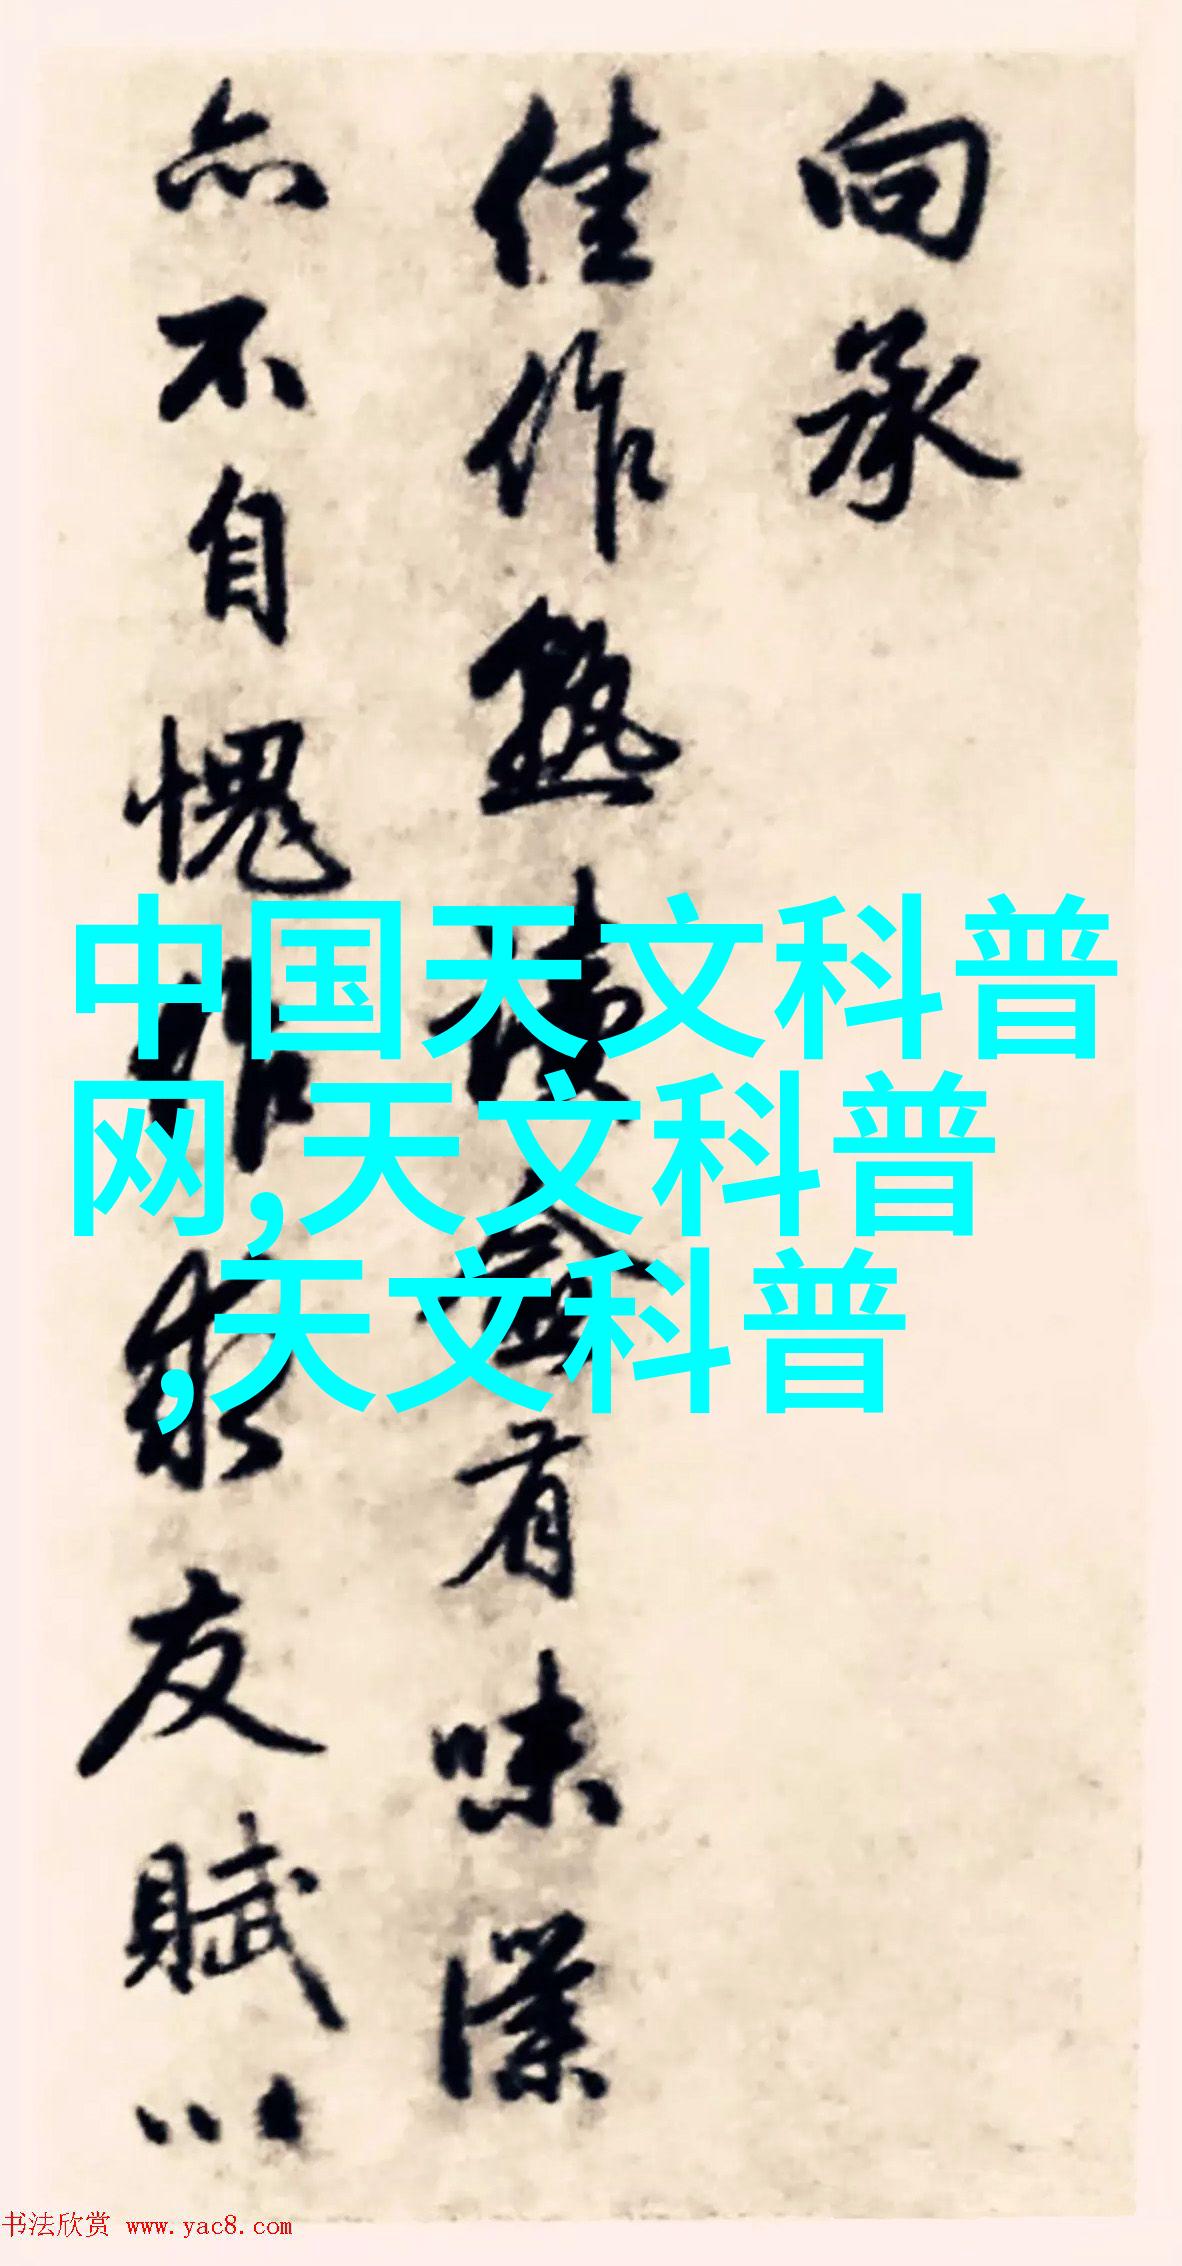 向承
佳作熟讀益有味僕
亦不自愧作友賦以
中国天文科普
网,天文科普
,天文科普
书法欣赏 www.yac8.com